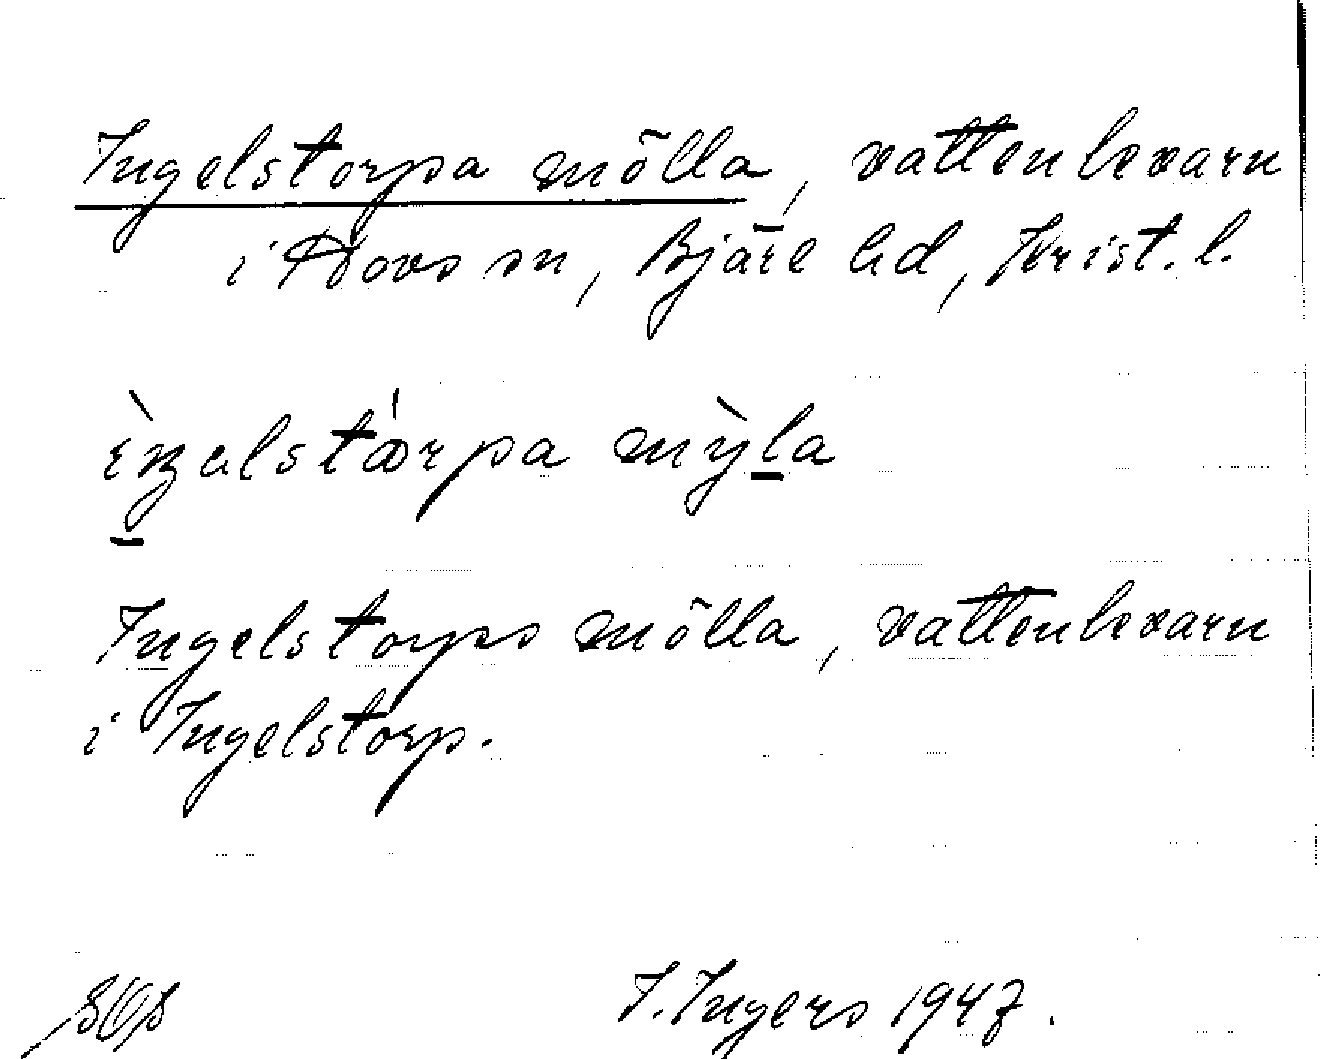 Ingelstorpa mölla, vattenkvarn
i Hovs sn, Bjäre hd, Krist. l.
mỳla
Ingelstorps mölla, vattenkvarn
i Ingelstorp.
I. Ingers 1947.